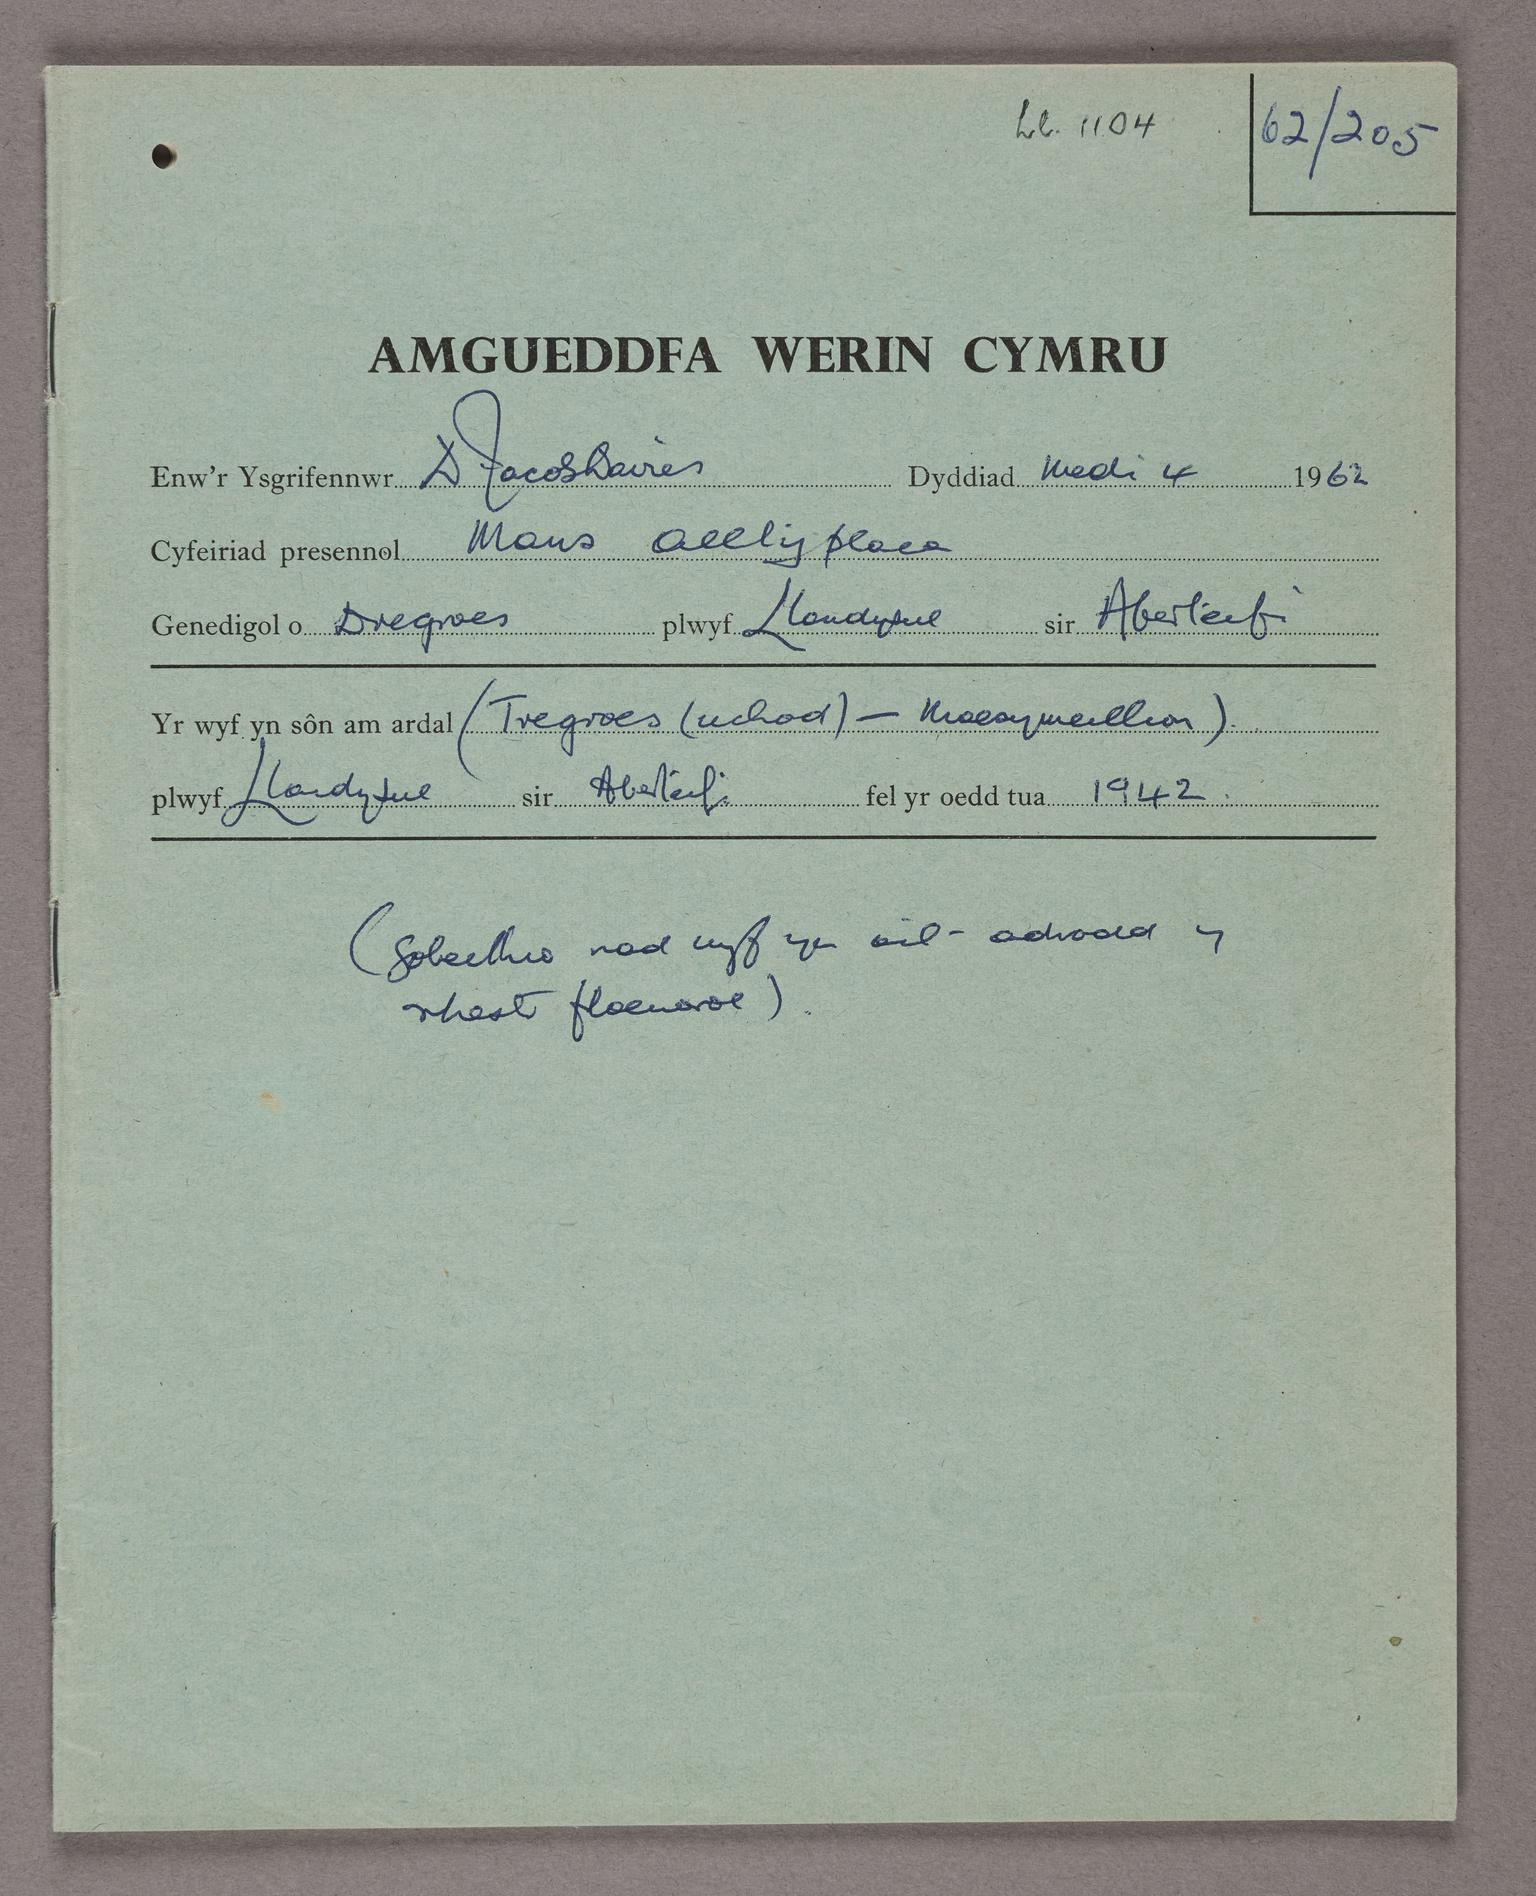 Ll. 1104
62/205
AMGUEDDFA WERIN CYMRU
Enw'r Ysgrifennwr D Jacob Davies Dyddiad Medi 4 1962
Cyfeiriad presennol Mans Alltyplaca
Genedigol o Dregroes plwyf Llandysul sir Aberteifi
Yr wyf yn sôn am ardal (Tregroes (uchod) – Maesymeillion).
plwyf Llandysul sir Aberteifi fel yr oedd tua 1942.
(Gobeithio nad wyf yn ail-adrodd y
rhestr flaenorol).